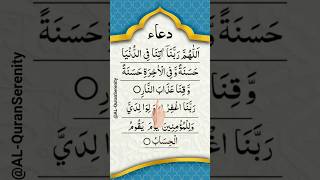 دعاء
اَللّٰهُمَّ رَبَّنَآ اٰتِنَا فِى الدُّنْيَا
حَسَنَةً وَّ فِى الْاٰخِرَةِ حَسَنَةً
وَّ قِنَا عَذَابَ النَّارِ
رَبَّنَا اغْفِرْ لِىْ وَلِوَالِدَىَّ
وَلِلْمُؤْمِنِيْنَ يَوْمَ يَقُوْمُ
الْحِسَابُ
@AL-QuranSerenity
@AL-QuranSerenity